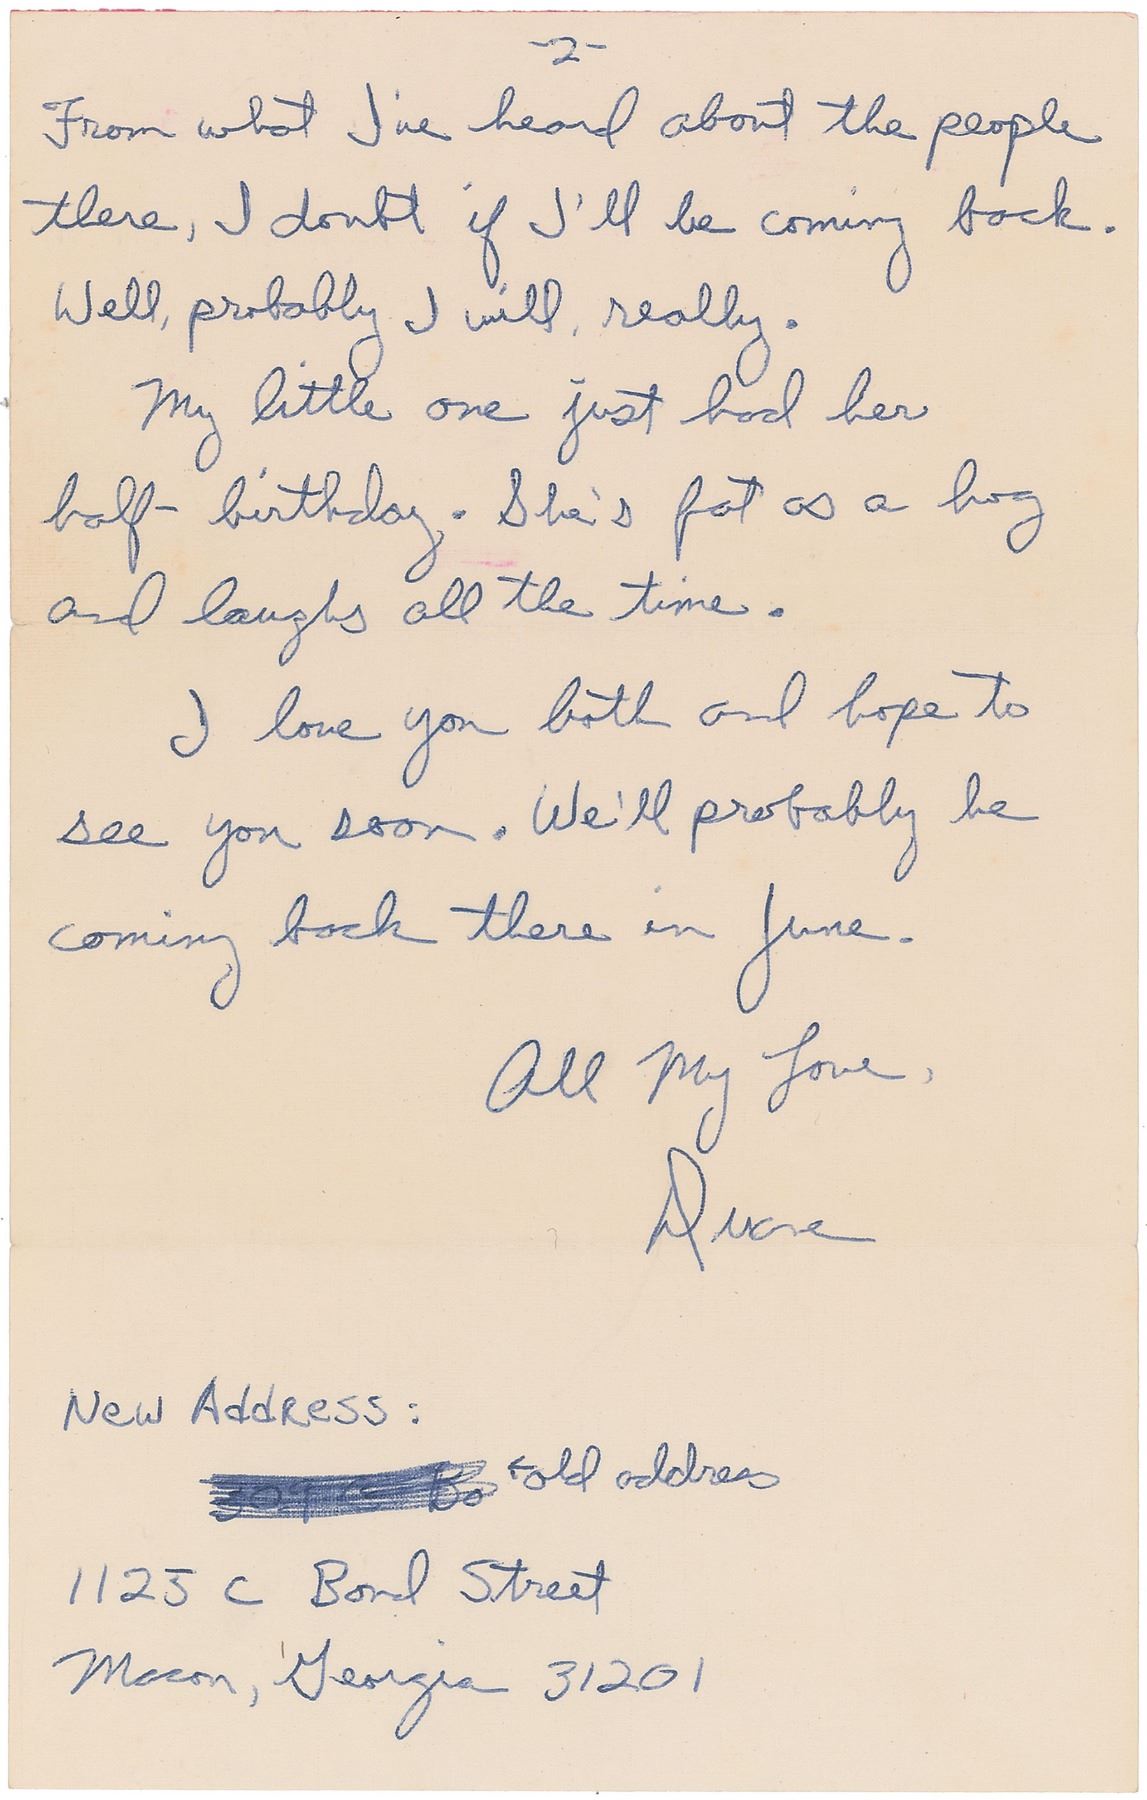 -2-
From what I've heard about the people
there, I doubt if I'll be coming back.
Well, probably I will, really.
My little one just had her
half-birthday. She's fat as a hog
and laughs all the time.
I love you both and hope to
see you soon. We'll probably be
coming back there in June.
All My Love,
Duane
New Address:
←old address
1125 C Bond Street
Macon, Georgia 31201